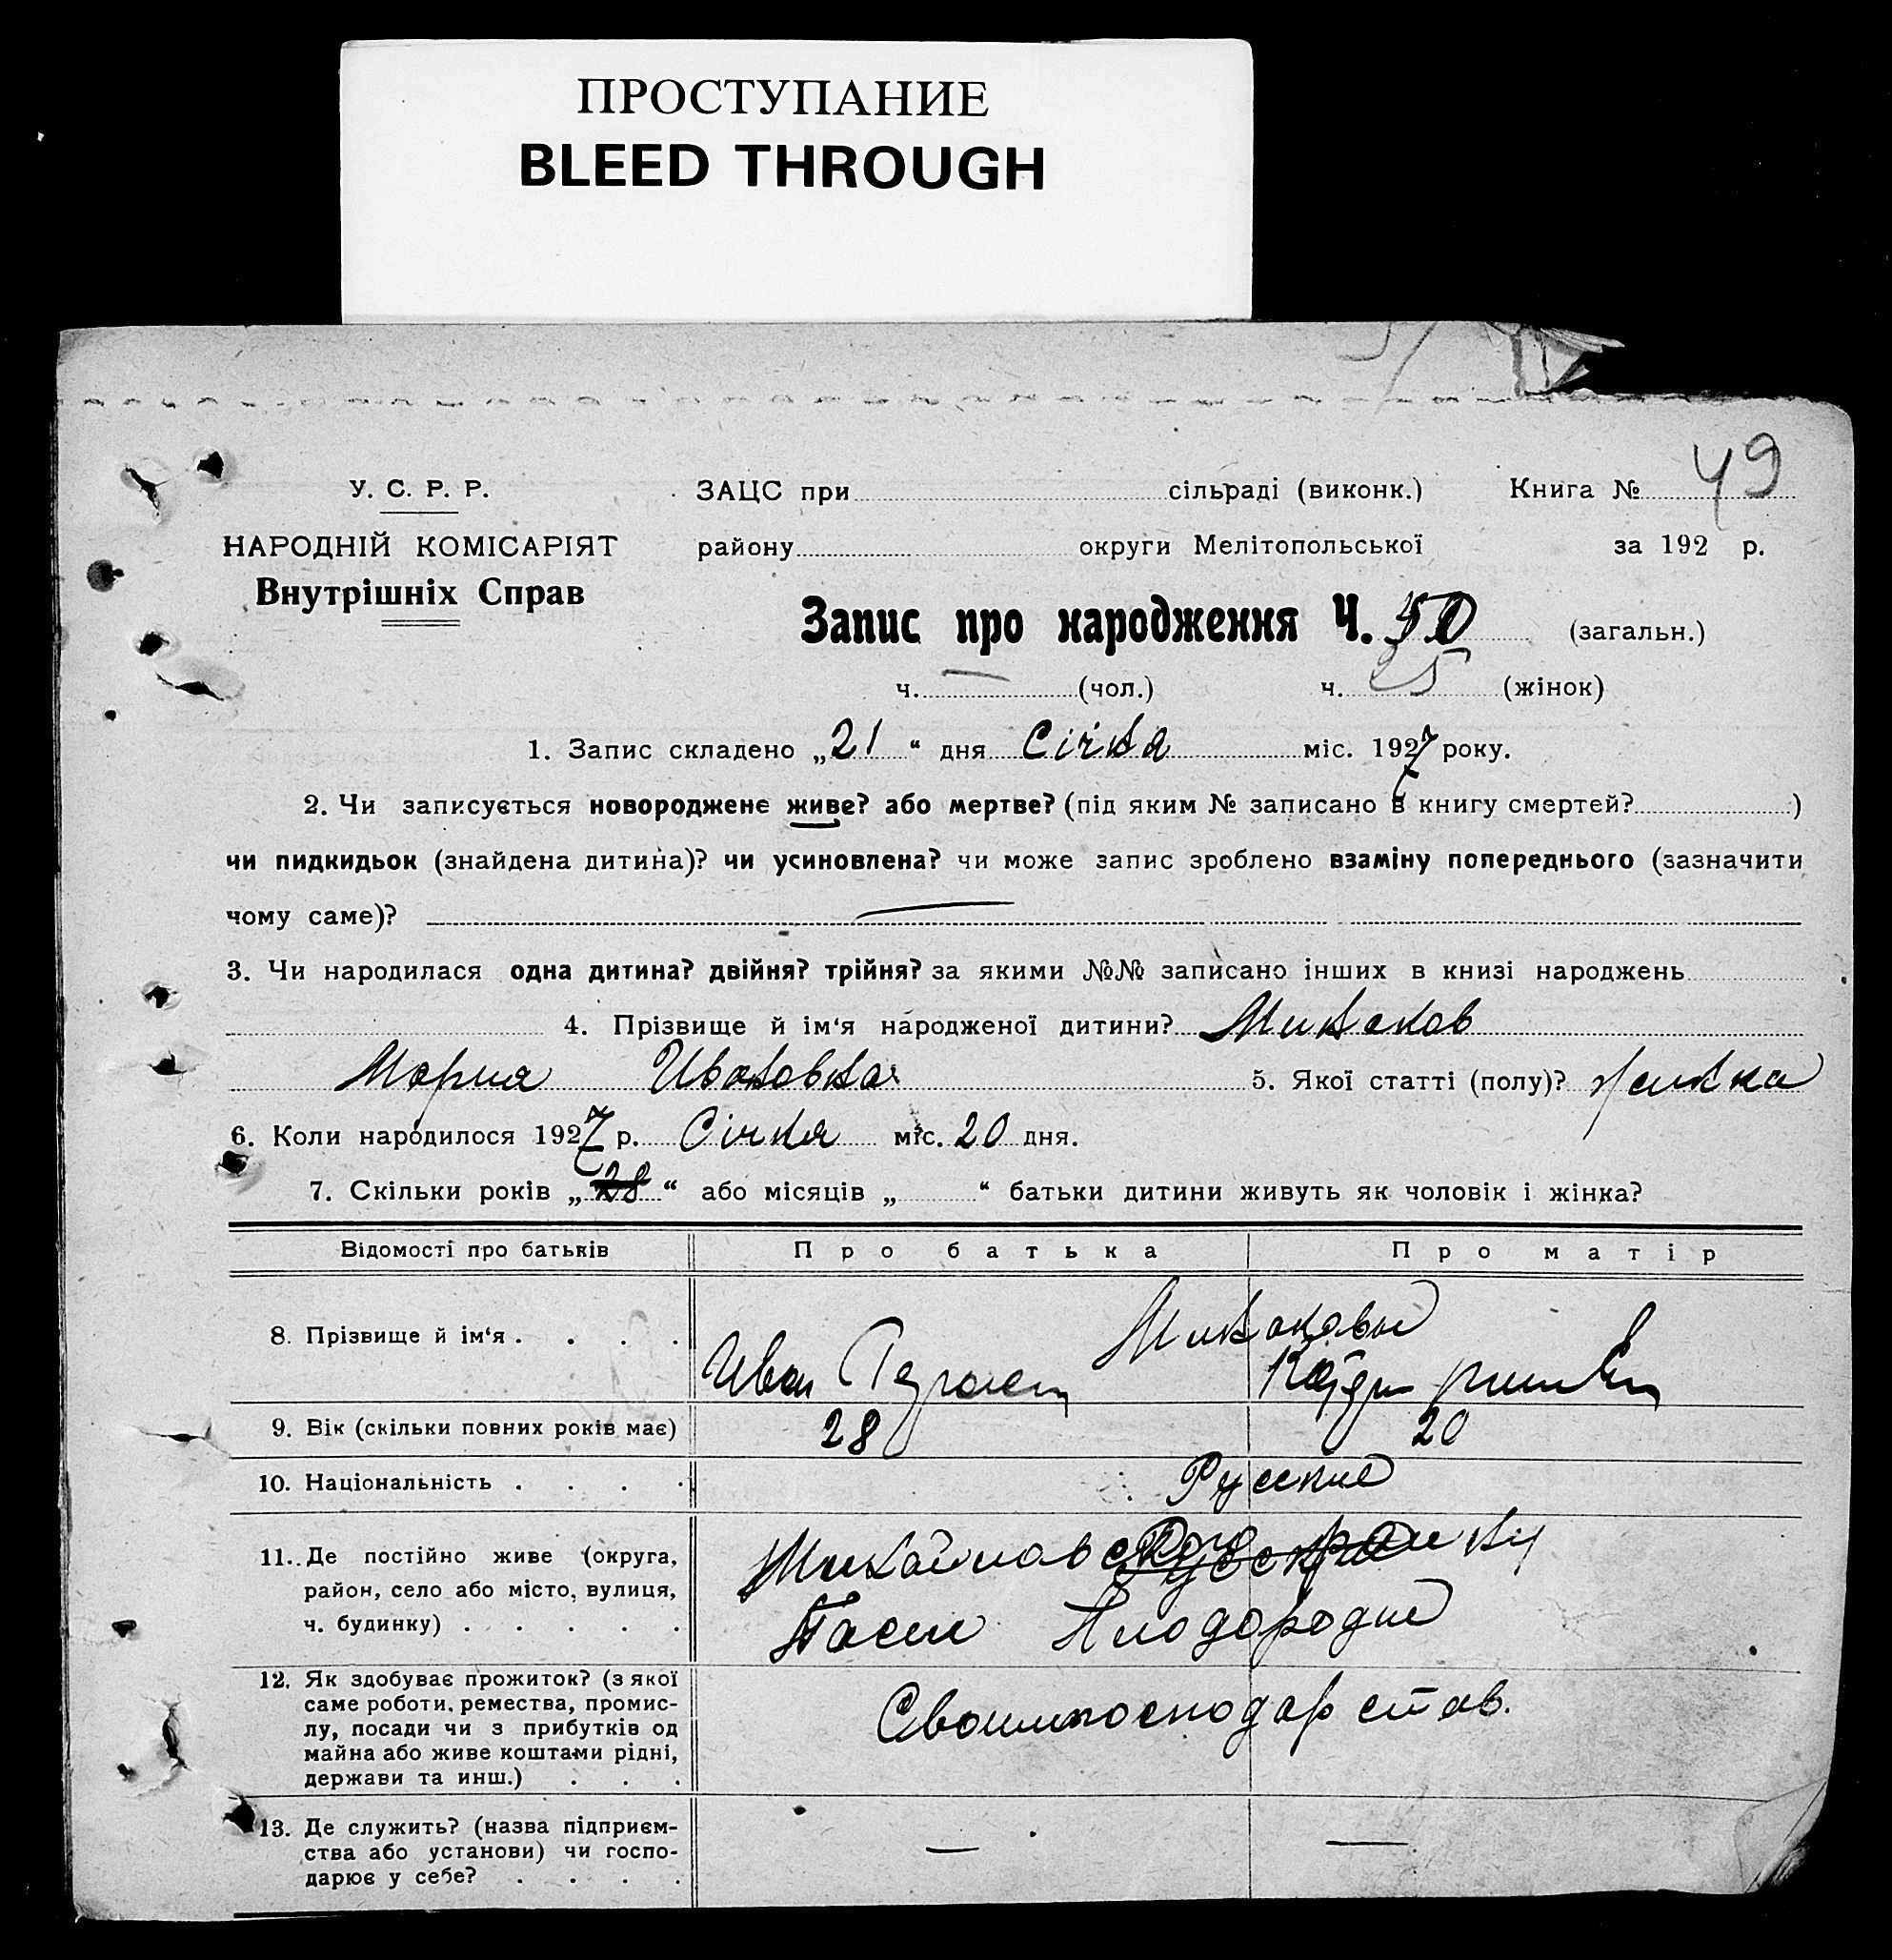 ПРОСТУПАНИЕ
BLEED THROUGH
49
У. С. Р. Р. ЗАЦС при сільраді (виконк.) Книга №
НАРОДНІЙ КОМІСАРІЯТ району округи Мелітопольської за 192 р.
Внутрішніх Справ
Запис про народження Ч. 50 (загальн.)
ч. — (чол.) ч. 25 (жінок)
1. Запис складено „21“ дня Січня міс. 1927 року.
2. Чи записується новороджене живе? або мертве? (під яким № записано в книгу смертей? )
чи пидкидьок (знайдена дитина)? чи усиновлена? чи може запис зроблено взаміну попереднього (зазначити
чому саме)? —
3. Чи народилася одна дитина? двійня? трійня? за якими №№ записано інших в книзі народжень
4. Прізвище й ім‘я народженої дитини?
Мария Ивановна 5. Якої статті (полу)? жинка
6. Коли народилося 1927 р. Січня міс. 20 дня.
7. Скільки років „28“ або місяців „ “ батьки дитини живуть як чоловік і жінка?
Відомості про батьків Про батька Про матір
8. Прізвище й ім‘я . . . .
Иван
9. Вік (скільки повних років має) 28 20
10. Національність . . . . Русские
11. Де постійно живе (округа,
район, село або місто, вулиця,
ч. будинку) . . . . .
Михайловского району
Плодородне
12. Як здобуває прожиток? (з якої
саме роботи, ремества, промис-
лу, посади чи з прибутків од
майна або живе коштами рідні,
держави та инш.) . . .
Своим господарством.
13. Де служить? (назва підприєм-
ства або установи) чи госпо-
дарює у себе? . . . .
— —